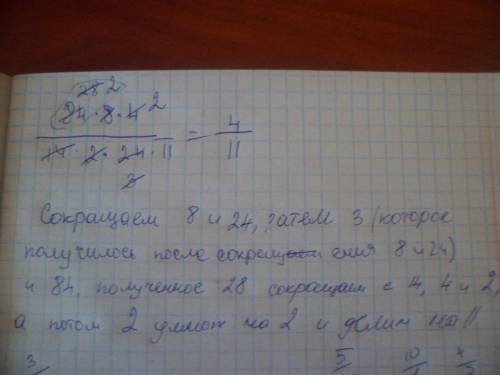 28 2
84 · 8 · 4 2
14 · 2 · 24 · 11 = 4/11
3
Сокращаем 8 и 24, затем 3 (которое
получилось после сокращения 8 и 24)
и 84, полученное 28 сокращаем с 14, 4 и 2,
а потом 2 умнож на 2 и делим на 11
3 5 10 4